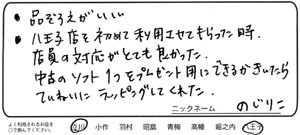 ・品ぞろえがいい
・八王子店を初めて利用させてもらった時、
店員の対応がとても良かった。
中古のソフト1つをプレゼント用にできるかきいたら
ていねいにラッピングしてくれた。
ニックネーム のじりこ
よく利用されるお店を
○で囲んでください。
立川 小作 羽村 昭島 青梅 高幡 堀之内 八王子